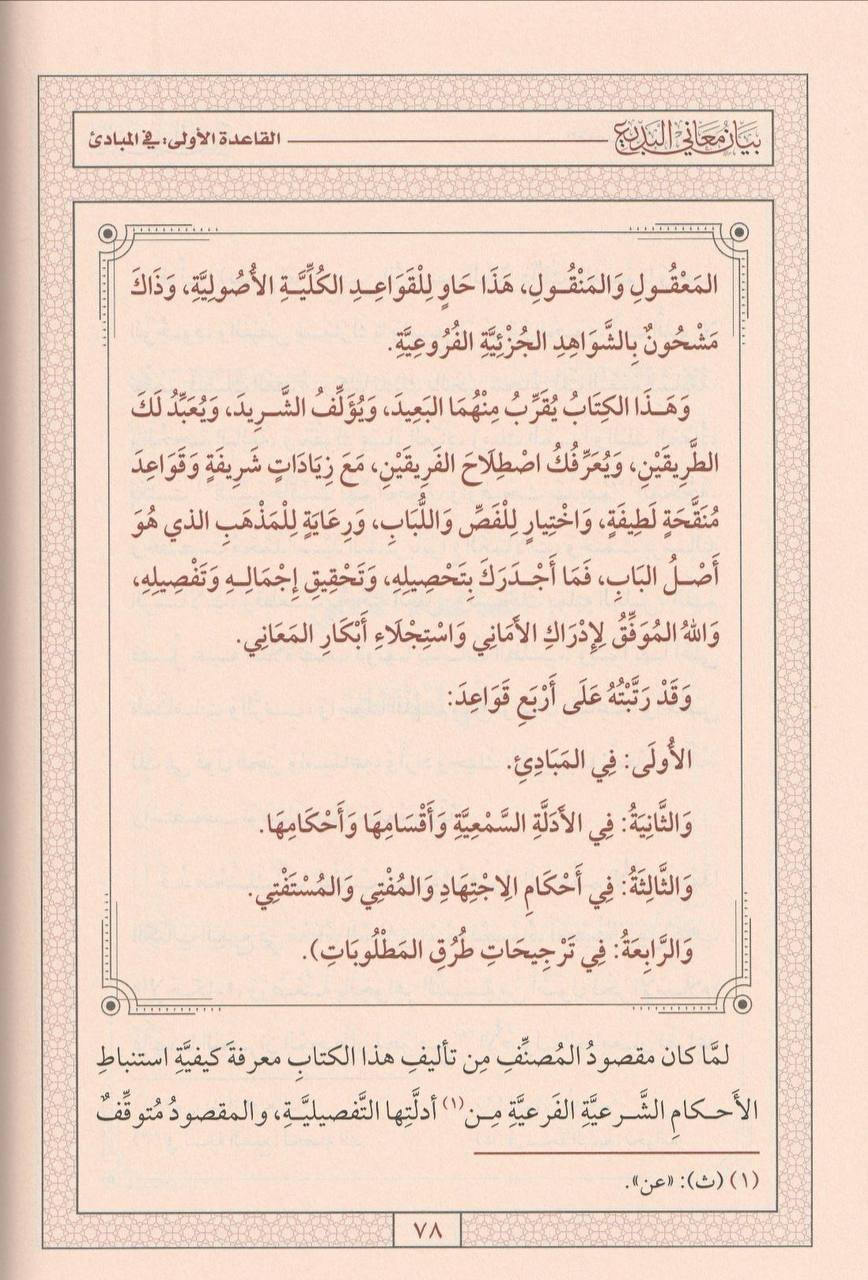 بيان معاني البديع القاعدة الأولى: في المبادئ
المَعْقُولِ وَالمَنْقُولِ، هَذَا حَاوٍ لِلْقَوَاعِدِ الكُلِّيَّةِ الأُصُولِيَّةِ، وَذَاكَ
مَشْحُونٌ بِالشَّوَاهِدِ الجُزْئِيَّةِ الفُرُوعِيَّةِ.
وَهَذَا الكِتَابُ يُقَرِّبُ مِنْهُمَا البَعِيدَ، وَيُؤَلِّفُ الشَّرِيدَ، وَيُعَبِّدُ لَكَ
الطَّرِيقَيْنِ، وَيُعَرِّفُكَ اصْطِلَاحَ الفَرِيقَيْنِ، مَعَ زِيَادَاتٍ شَرِيفَةٍ وَقَوَاعِدَ
مُنَقَّحَةٍ لَطِيفَةٍ، وَاخْتِيَارٍ لِلْفَصِّ وَاللُّبَابِ، وَرِعَايَةٍ لِلْمَذْهَبِ الذي هُوَ
أَصْلُ البَابِ، فَمَا أَجْدَرَكَ بِتَحْصِيلِهِ، وَتَحْقِيقِ إِجْمَالِهِ وَتَفْصِيلِهِ،
وَاللهُ المُوَفِّقُ لِإِدْرَاكِ الأَمَانِي وَاسْتِجْلَاءِ أَبْكَارِ المَعَانِي.
وَقَدْ رَتَّبْتُهُ عَلَى أَرْبَعِ قَوَاعِدَ:
الأُولَى: فِي المَبَادِئِ.
وَالثَّانِيَةُ: فِي الأَدَلَّةِ السَّمْعِيَّةِ وَأَقْسَامِهَا وَأَحْكَامِهَا.
وَالثَّالِثَةُ: فِي أَحْكَامِ الِاجْتِهَادِ وَالمُفْتِي وَالمُسْتَفْتِي.
وَالرَّابِعَةُ: فِي تَرْجِيحَاتِ طُرُقِ المَطْلُوبَاتِ).
لمَّا كان مقصودُ المُصنِّفِ مِن تأليفِ هذا الكتابِ معرفةَ كيفيَّةِ استنباطِ
الأَحكامِ الشَّرعيَّةِ الفَرعيَّةِ مِن(١) أدلَّتِها التَّفصيليَّةِ، والمقصودُ مُتوقِّفٌ
(١) (ث): «عن».
٧٨